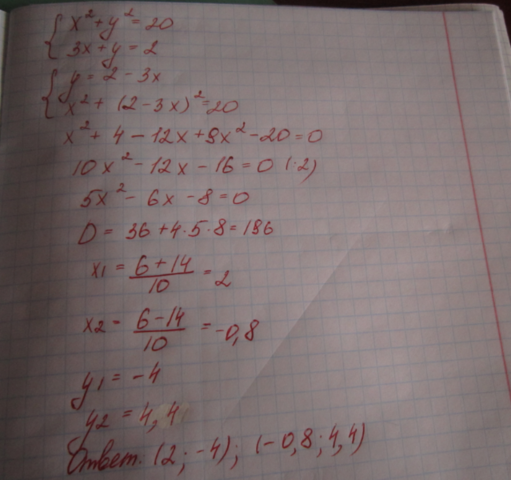 { x² + y² = 20
3x + y = 2
{ y = 2 - 3x
x² + (2 - 3x)² = 20
x² + 4 - 12x + 9x² - 20 = 0
10x² - 12x - 16 = 0 (:2)
5x² - 6x - 8 = 0
D = 36 + 4·5·8 = 196
x1 = (6+14)/10 = 2
x2 = (6-14)/10 = -0,8
y1 = -4
y2 = 4,4
Ответ. (2; -4); (-0,8; 4,4)